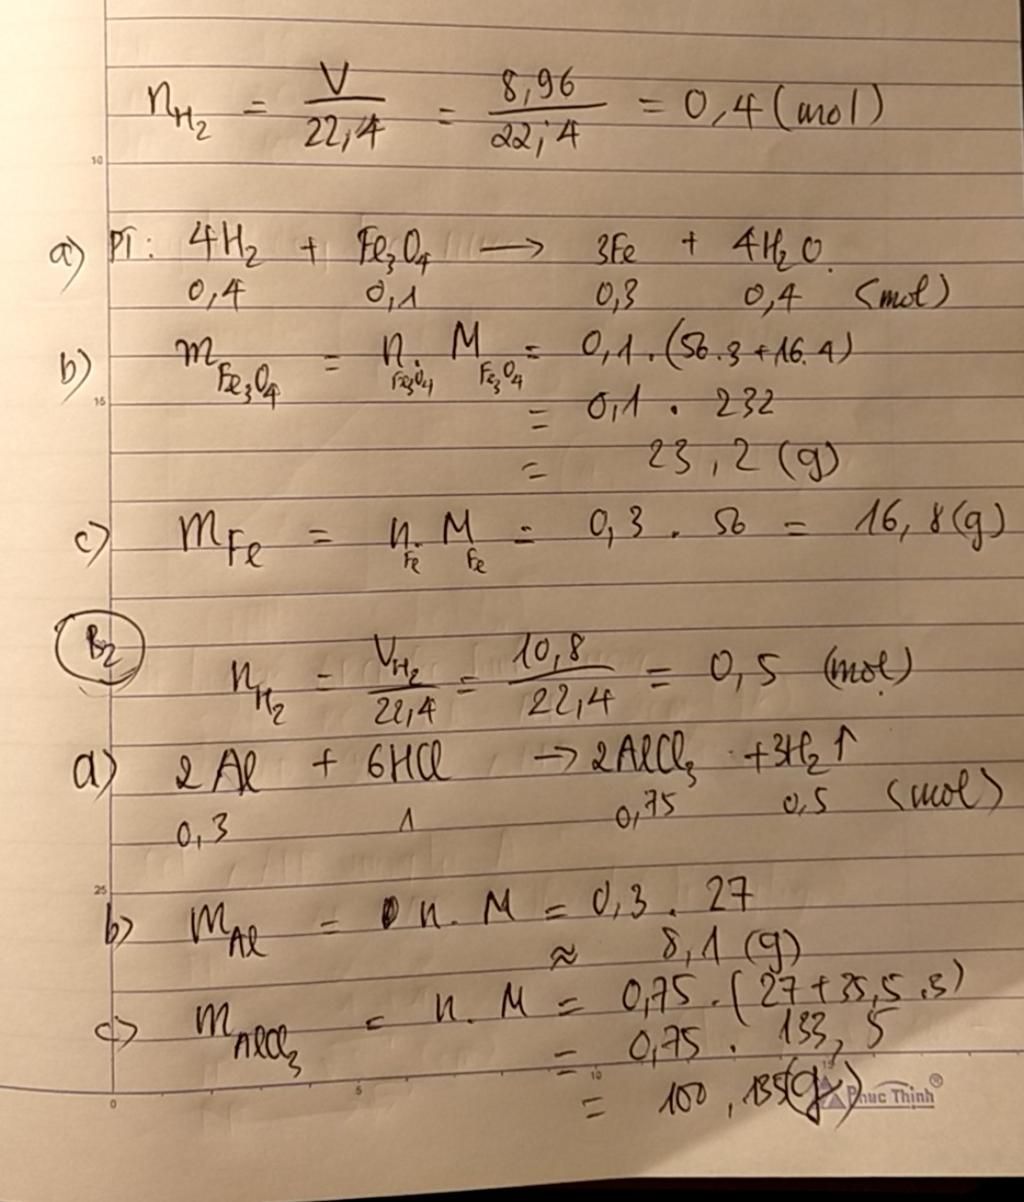 n_H₂ = V/22,4 = 8,96/22,4 = 0,4 (mol)
10
a) PT: 4H₂ + Fe₃O₄ → 3Fe + 4H₂O
0,4 0,1 0,3 0,4 (mol)
b) m_Fe₃O₄ = n_Fe₃O₄ . M_Fe₃O₄ = 0,1 . (56.3 + 16.4)
15
= 0,1 . 232
= 23,2 (g)
c) m_Fe = n_Fe . M_Fe = 0,3 . 56 = 16,8 (g)
B2
n_H₂ = V_H₂/22,4 = 10,8/22,4 = 0,5 (mol)
a) 2Al + 6HCl → 2AlCl₃ + 3H₂ ↑
0,3 1 0,75 0,5 (mol)
25
b) m_Al = n . M = 0,3 . 27
≈ 8,1 (g)
c) m_AlCl₃ = n . M = 0,75 . (27 + 35,5 .3)
= 0,75 . 133,5
= 100,135 (g)
0 5 10 15
Phuc Thinh®